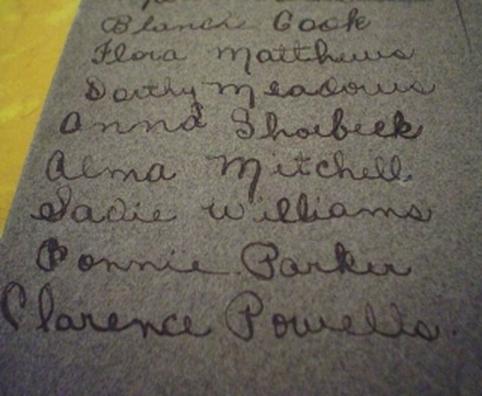 Blanche Cook
Flora Matthews
Dorthy Meadows
Anna Shoebeek
Alma Mitchell
Sadie Williams
Bonnie Parker
Clarence Powells.